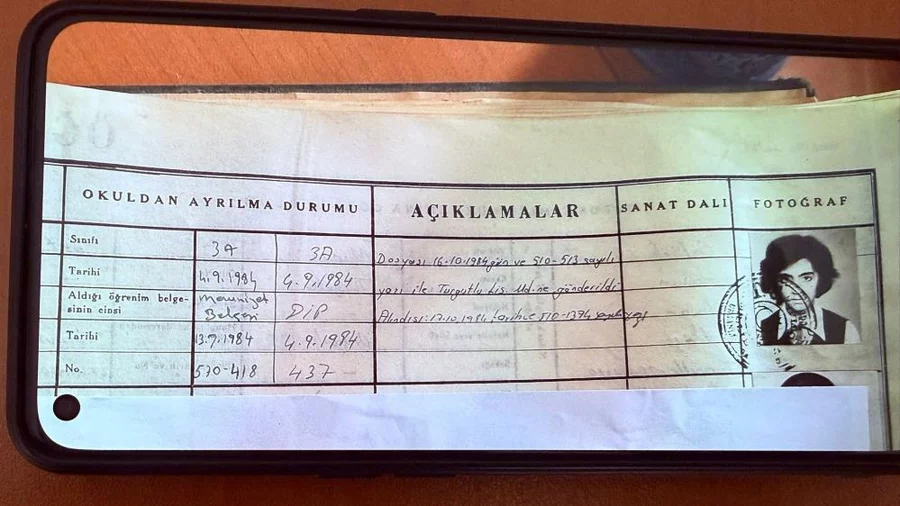 OKULDAN AYRILMA DURUMU AÇIKLAMALAR SANAT DALI FOTOĞRAF
Sınıfı 3A 3A
Tarihi 4.9.1984 4.9.1984
Aldığı öğrenim belge-
sinin cinsi
Mezuniyet
Belgesi DİP
Tarihi 13.9.1984 4.9.1984
No. 510-418 437
Dosyası 16.10.1984 gün ve 510-513 sayılı
yazı ile Turgutlu Lis. Md.ne gönderildi
Alındısı: 17.10.1984 tarih ve 510-1374